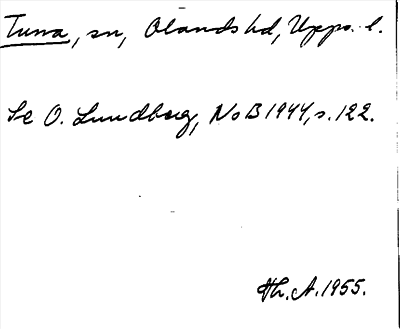 Tuna, sn, Olands hd, Upps. l.
Se O. Lundberg, NoB 1944, s. 122.
Th. A. 1955.